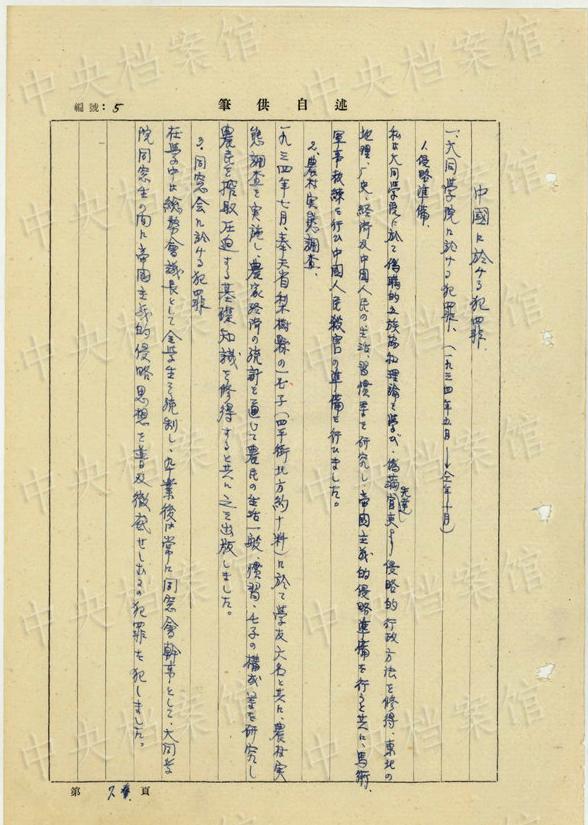 編號：5
筆供自述
中國に於ける犯罪、
一、大同学院に於ける犯罪、（一九三四年五月→仝年十月）
1、侵略準備、
私は大同学院に於て偽瞞的五族協和理論を学び、偽満官吏先輩より侵略的行政方法を修得、東北の
地理、歴史、経済及中国人民の生活、習慣等を研究し、帝国主義的侵略準備を行うと共に、馬術、
軍事教練を行い中国人民殺害の準備を行いました。
2、農村実態調査、
一九三四年七月、奉天省梨樹縣の一屯子（四平街北方約十粁）に於て学友六名と共に、農村実
態調査を実施し、農家経済の統計を通じて農民の生活一般、慣習、屯子の構成等を研究し
農民を搾取圧迫する基礎知識を修得すると共に之を出版しました。
3、同窓会に於ける犯罪
在学中は総務會議長として全学生を統制し、卒業後は常に同窓會幹事として、大同学
院同窓生の間に帝国主義的侵略思想を普及徹底せしむるの犯罪を犯しました。
第 頁
中央档案馆